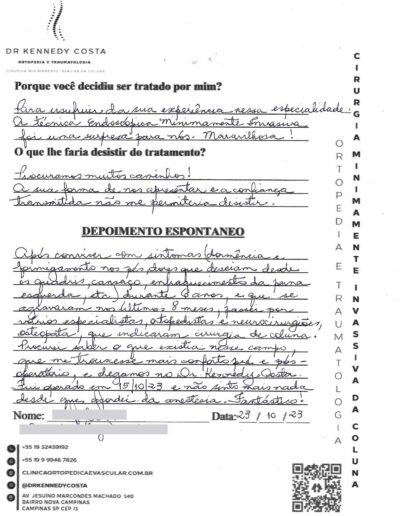 DR KENNEDY COSTA
ORTOPEDIA E TRAUMATOLOGIA
CIRURGIA MINIMAMENTE INVASIVA DA COLUNA
Porque você decidiu ser tratado por mim?
Para usufruir da sua experiência nessa especialidade.
A técnica Endoscópica Minimamente Invasiva
foi uma surpresa para nós. Maravilhosa!
O que lhe faria desistir do tratamento?
Procuramos muitos caminhos!
A sua forma de nos apresentar e a confiança
transmitida não me permitiria desistir.
DEPOIMENTO ESPONTANEO
Após conviver com sintomas (dormência e
formigamento nos pés, dores que desciam desde
os quadris, cansaço, enfraquecimentos da perna
esquerda, etc) durante anos, e que se
agravaram nos últimos 8 meses, passei por
vários especialistas, ortopedistas e neurocirurgiões,
osteopata, que indicaram cirurgia de coluna.
Procurei saber o que existia nesse campo,
que me trouxesse mais conforto pré e pós-
operatório, e chegamos no Dr Kennedy Costa.
Fui operado em 15/10/23 e não sinto mais nada
desde que acordei da anestesia. Fantástico!
Nome:
Data: 23 / 10 / 23
+55 19 32439192
+55 19 9 9946 7826
CLINICAORTOPEDICAEVASCULAR.COM.BR
@DRKENNEDYCOSTA
AV. JESUÍNO MARCONDES MACHADO 540
BAIRRO NOVA CAMPINAS
CAMPINAS SP CEP 13
ORTOPEDIA E TRAUMATOLOGIA
CIRURGIA MINIMAMENTE INVASSIVA DA COLUNA